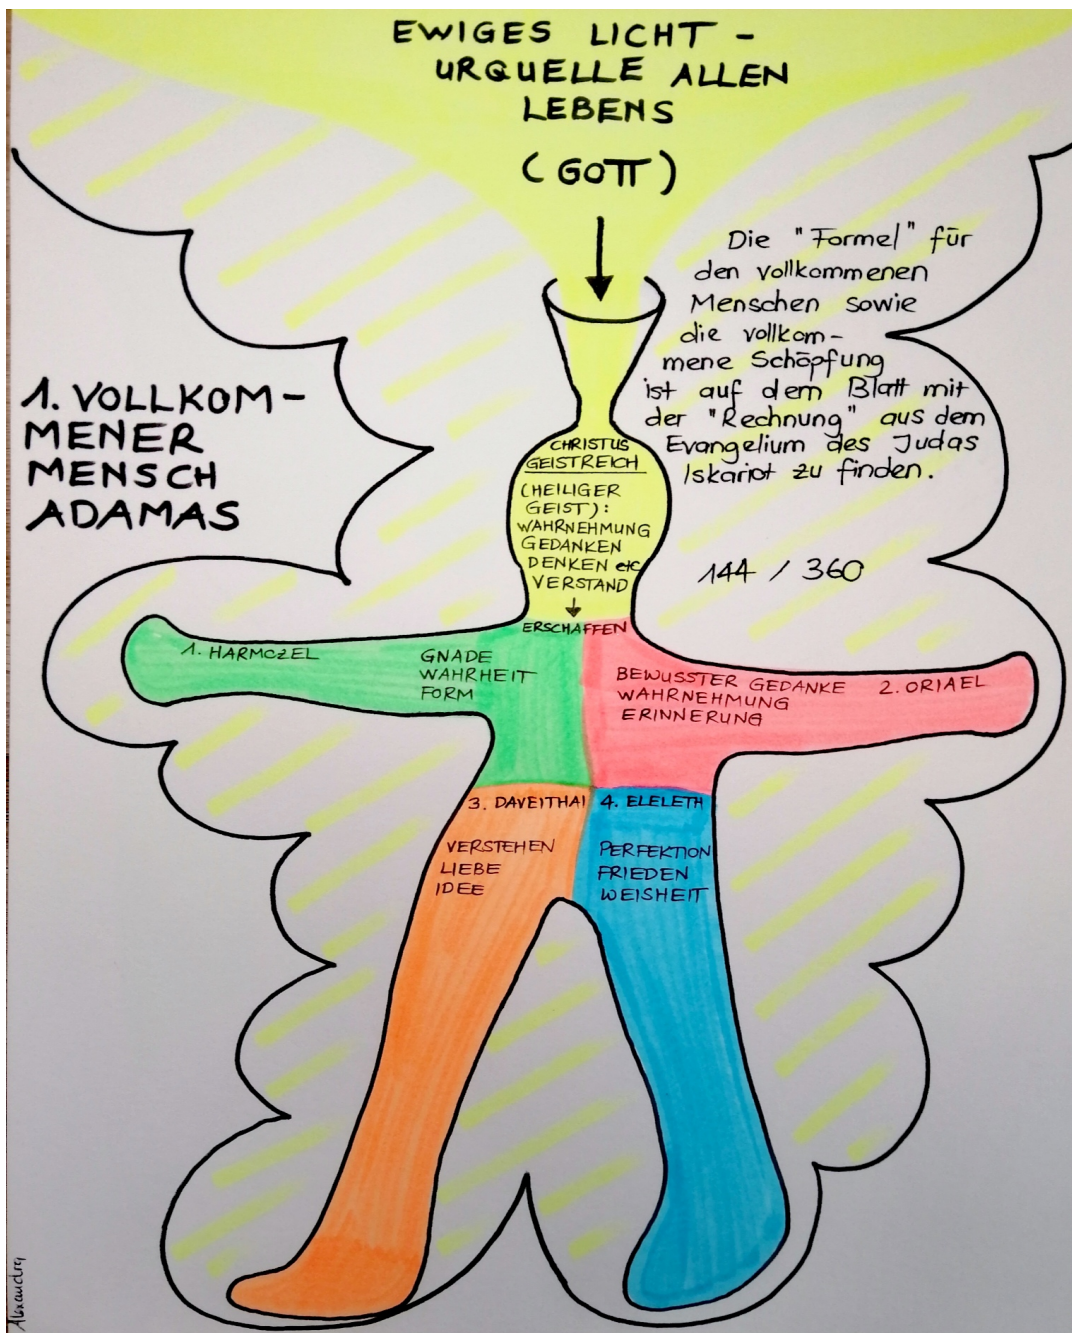 EWIGES LICHT -
URQUELLE ALLEN
LEBENS
(GOTT)
Die "Formel" für
den vollkommenen
Menschen sowie
die vollkom-
mene Schöpfung
ist auf dem Blatt mit
der "Rechnung" aus dem
Evangelium des Judas
Iskariot zu finden.
144 / 360
1. VOLLKOM-
MENER
MENSCH
ADAMAS
CHRISTUS
GEISTREICH
(HEILIGER
GEIST):
WAHRNEHMUNG
GEDANKEN
DENKEN etc
VERSTAND
ERSCHAFFEN
1. HARMOZEL
GNADE
WAHRHEIT
FORM
BEWUSSTER GEDANKE
WAHRNEHMUNG
ERINNERUNG
2. ORIAEL
3. DAVEITHAI
VERSTEHEN
LIEBE
IDEE
4. ELELETH
PERFEKTION
FRIEDEN
WEISHEIT
Alexandra